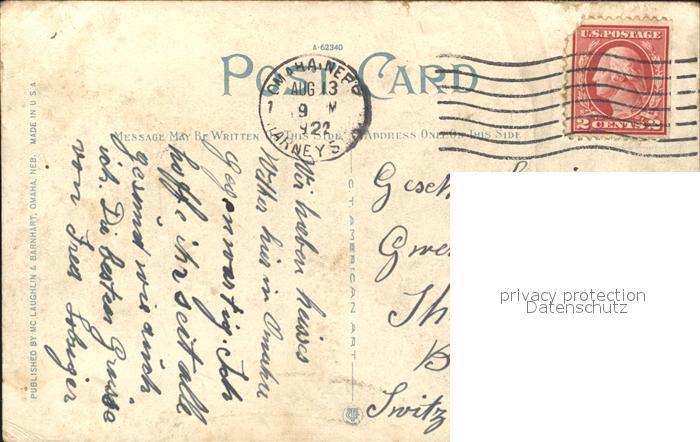 A-62340
POST CARD
U.S. POSTAGE
2 CENTS 2
OMAHA, NEBR.
AUG 13
9 M
1922
HARNEY S
MESSAGE MAY BE WRITTEN ON THIS SIDE
ADDRESS ONLY ON THIS SIDE
PUBLISHED BY MC LAUGHLIN & BARNHART, OMAHA, NEB. MADE IN U.S.A.
C.T. AMERICAN ART
Wir haben heises
Wetter hier in Omaha
Gegenwartig. Ich
hoffe ihr seit alle
gesund wie auch
ich. Die besten Grüsse
von Fred
Gesch
Gwe
Th
B
Switz
privacy protection
Datenschutz